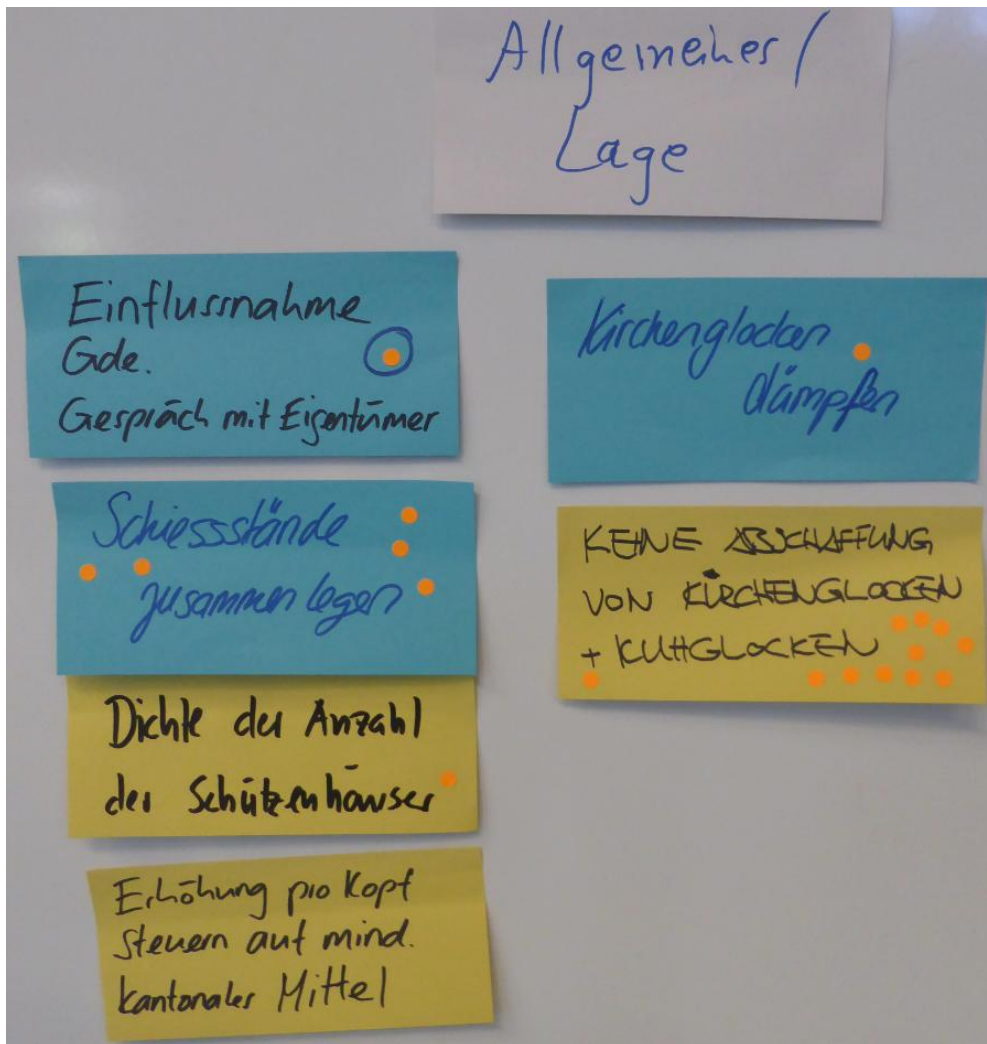 Allgemeines /
Lage
Einflussnahme
Gde.
Gespräch mit Eigentümer
Schiessstände
zusammen legen
Dichte der Anzahl
der Schützenhäuser
Erhöhung pro Kopf
steuern auf mind.
kantonales Mittel
Kirchenglocken
dämpfen
KEINE ABSCHAFFUNG
VON KIRCHENGLOCKEN
+ KUHGLOCKEN